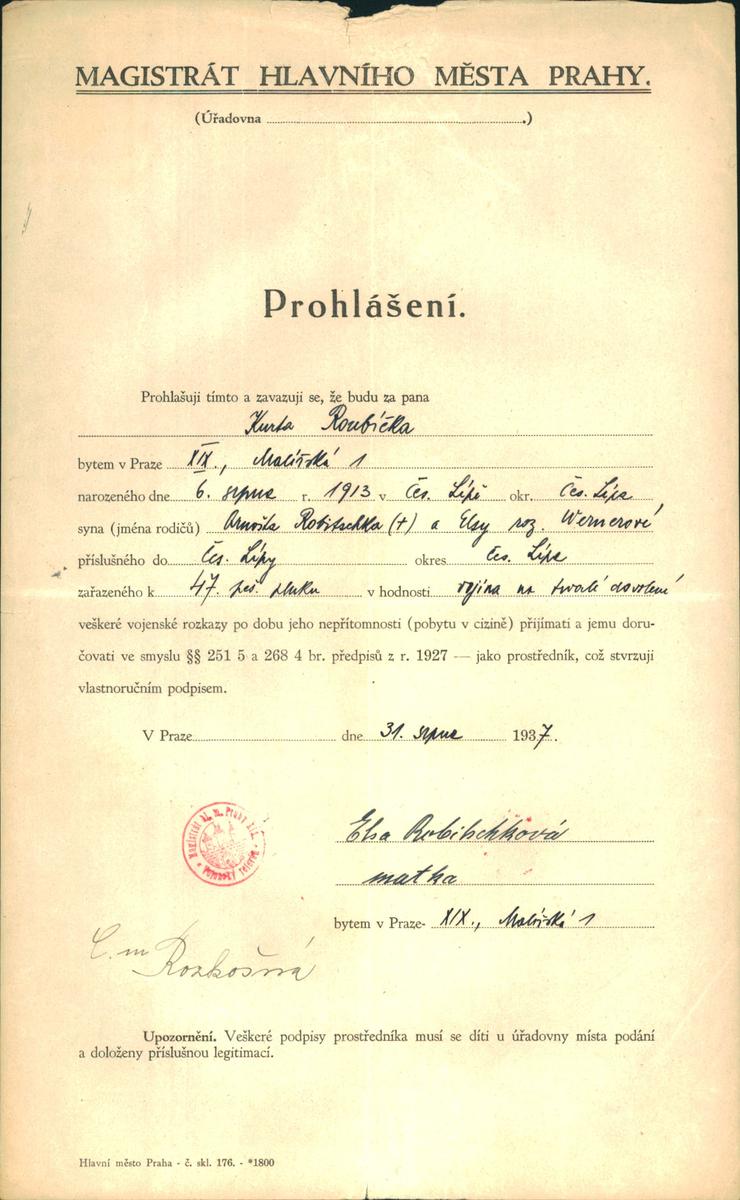 MAGISTRÁT HLAVNÍHO MĚSTA PRAHY.
(Úřadovna .)
Prohlášení.
Prohlašuji tímto a zavazuji se, že budu za pana
Kurta Roubíčka
bytem v Praze XIX., Malířská 1
narozeného dne 6. srpna r. 1913 v Čes. Lípě okr. Čes. Lípa
syna (jména rodičů) Arnošta Robitschka (+) a Elsy roz. Wernerové
příslušného do Čes. Lípy okres Čes. Lípa
zařazeného k 47. pěš. pluku v hodnosti vojína na trvalé dovolené
veškeré vojenské rozkazy po dobu jeho nepřítomnosti (pobytu v cizině) přijímati a jemu doru-
čovati ve smyslu §§ 251 5 a 268 4 br. předpisů z r. 1927 — jako prostředník, což stvrzuji
vlastnoručním podpisem.
V Praze dne 31. srpna 1937.
Magistrát hl. m. Prahy
Elsa Robitschková
matka
bytem v Praze- XIX., Malířská 1
Rozkošná
Upozornění. Veškeré podpisy prostředníka musí se díti u úřadovny místa podání
a doloženy příslušnou legitimací.
Hlavní město Praha - č. skl. 176. - *1800